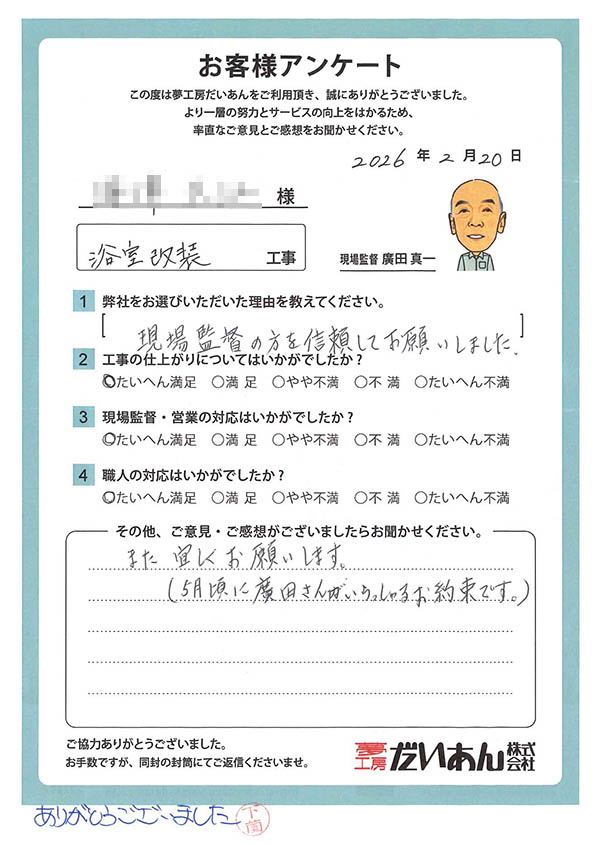 お客様アンケート
この度は夢工房だいあんをご利用頂き、誠にありがとうございました。
より一層の努力とサービスの向上をはかるため、
率直なご意見とご感想をお聞かせください。
2026年2月20日
様
浴室改装 工事
現場監督 廣田 真一
1 弊社をお選びいただいた理由を教えてください。
現場監督の方を信頼してお願いしました。
2 工事の仕上がりについてはいかがでしたか?
○たいへん満足 ○満足 ○やや不満 ○不満 ○たいへん不満
3 現場監督・営業の対応はいかがでしたか?
○たいへん満足 ○満足 ○やや不満 ○不満 ○たいへん不満
4 職人の対応はいかがでしたか?
○たいへん満足 ○満足 ○やや不満 ○不満 ○たいへん不満
その他、ご意見・ご感想がございましたらお聞かせください。
また宜しくお願いします。
(5月頃に廣田さんがいらっしゃるお約束です。)
ご協力ありがとうございました。
お手数ですが、同封の封筒にてご返信くださいませ。
夢工房 だいあん 株式会社
ありがとうございました 下薗